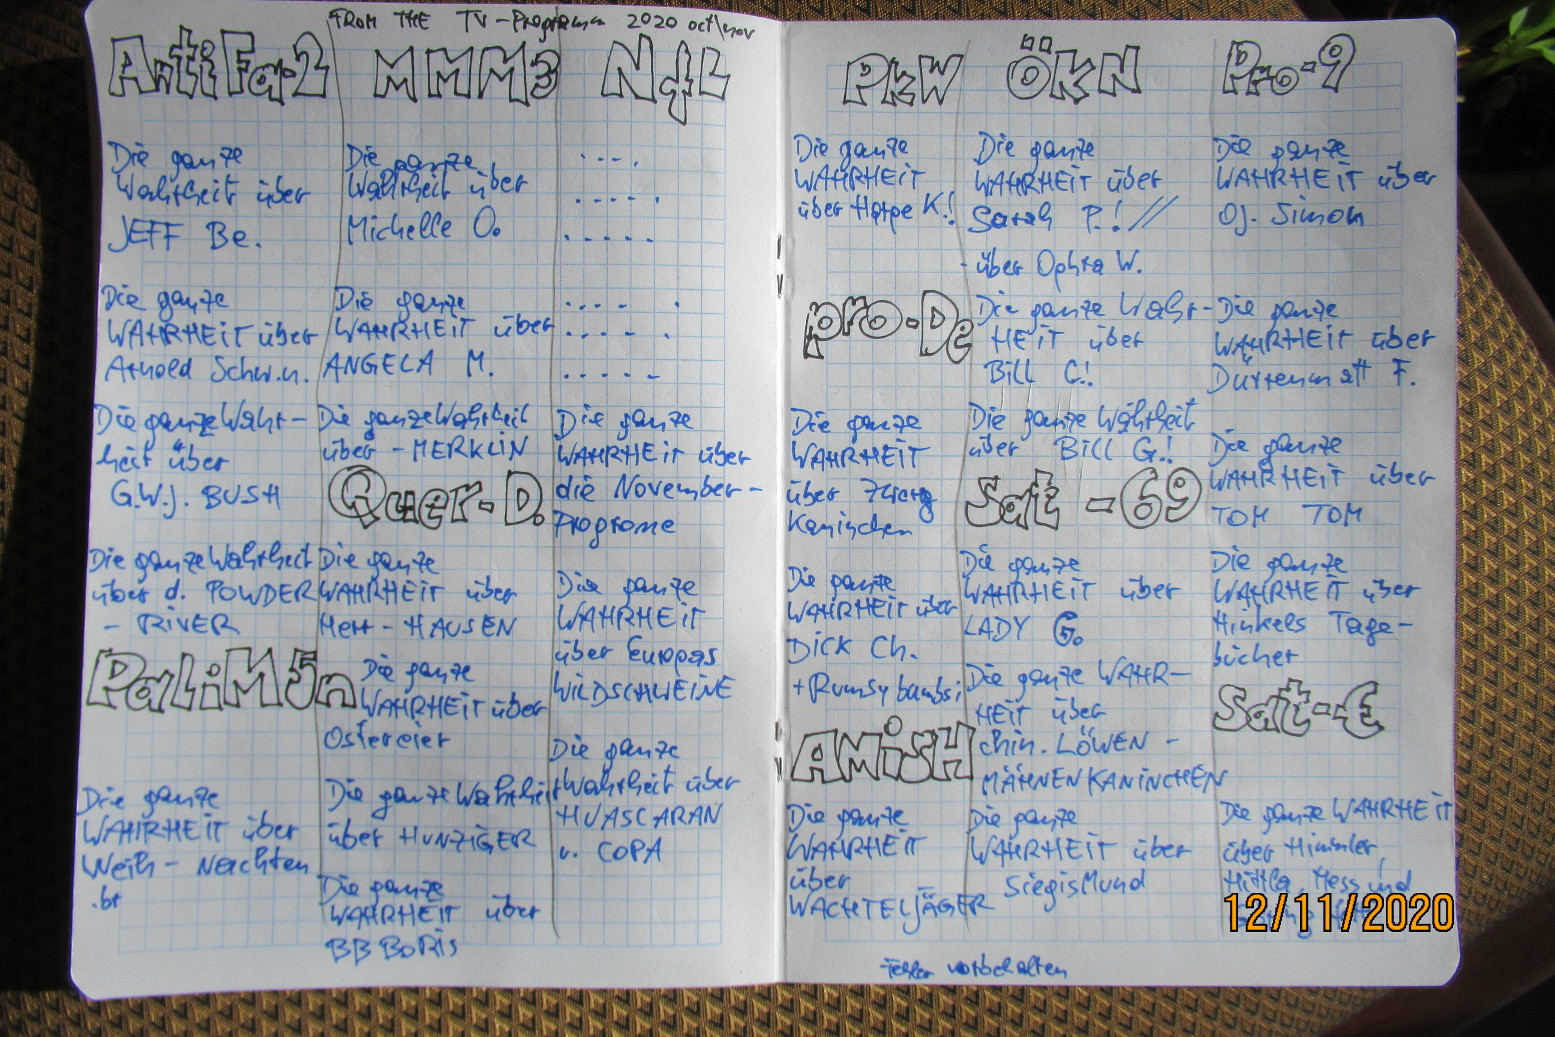 FROM THE TV-Programm 2020 oct\nov
AntiFa-2
Die ganze
Wahrheit über
JEFF Be.
Die ganze
WAHRHEIT über
Arnold Schw.n.
Die ganze Wahr-
heit über
G.W.J. BUSH
Die ganze Wahrheit
über d. POWDER
- RIVER
PaLiM5n
Die ganze
WAHRHEIT über
Weih - Nachten
.br
MMM3
Die ganze
Wahrheit über
Michelle O.
Die ganze
WAHRHEIT über
ANGELA M.
Die ganze Wahrheit
über - MERKLIN
Quer-D.
Die ganze
WAHRHEIT über
Herr - HAUSEN
Die ganze
WAHRHEIT über
Ostereier
Die ganze Wahrheit
über HUNZIGER
Die ganze
WAHRHEIT über
BB BORIS
N4L
....
.....
.....
.... .
.... .
.....
Die ganze
WAHRHEIT über
die November-
Programe
Die ganze
WAHRHEIT
über Europas
WILDSCHWEINE
Die ganze
Wahrheit über
HUASCARAN
u. COPA
PKW
Die ganze
WAHRHEIT
über Harpe K.!
pro-De
Die ganze
WAHRHEIT
über Zwerg
Kaninchen
Die ganze
WAHRHEIT über
DICK Ch.
+ Rumsybambsi
AMiSH
Die ganze
WAHRHEIT
über
WACHTELJÄGER
ÖKN
Die ganze
WAHRHEIT über
Sarah P.! //
- über Ophra W.
Die ganze Wahr-
HEIT über
BiLL C.!
Die ganze Wahrheit
über BiLL G.!
Sat-69
Die ganze
WAHRHEIT über
LADY G.
Die ganze WAHR-
HEIT über
chin. LÖWEN -
MÄHNENKANINCHEN
Die ganze
WAHRHEIT über
SiegisMund
Pro-9
Die ganze
WAHRHEIT über
OJ. Simon
Die ganze
WAHRHEIT über
Dürrenmatt F.
Die ganze
WAHRHEIT über
TOM TOM
Die ganze
WAHRHEIT über
Hinkels Tage-
bücher
Sat-€
Die ganze WAHRHEIT
über Himmler,
Hittla, Hess und
Fehler vorbehalten
12/11/2020